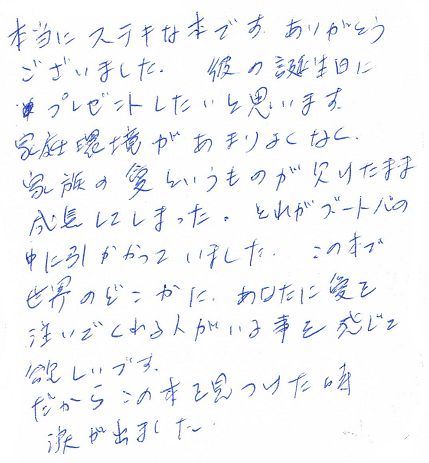 本当にステキな本です。ありがとう
ございました。 彼の誕生日に
プレゼントしたいと思います。
家庭環境があまりよくなく、
家族の愛というものが欠けたまま
成長してしまった。それがズートバの
中に引かかっていました。この本で
世界のどこかに、あなたに愛を
注いでくれる人がいる事を感じて
欲しいです。
だからこの本を見つけた時
涙が出ました。